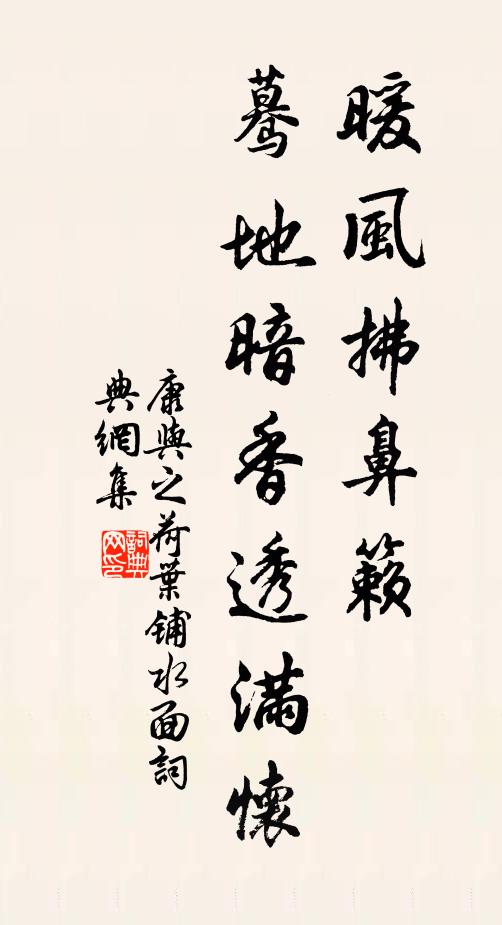 暖風拂鼻籟
驀地暗香透滿懷
康與之荷葉鋪水面詞
典網集
詞典
网印